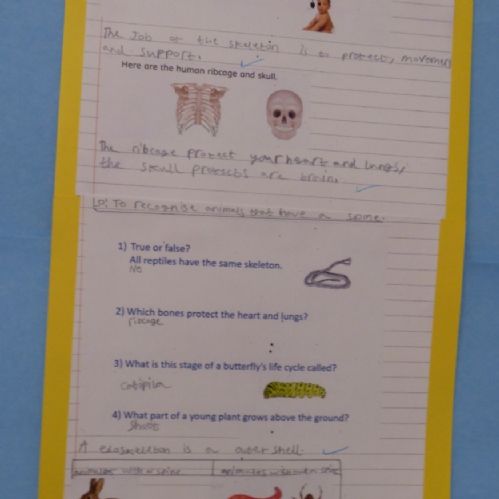 The Job of the skeleton is to protect, movement
and support.
Here are the human ribcage and skull.
The ribcage protect your heart and lungs,
the skull protects are brain.
LO: To recognise animals that have a spine.
1) True or false?
All reptiles have the same skeleton.
No
2) Which bones protect the heart and lungs?
ribcage
3) What is this stage of a butterfly's life cycle called?
4) What part of a young plant grows above the ground?
Shoot
A exoskeleton is a outer shell.
animals with a spine